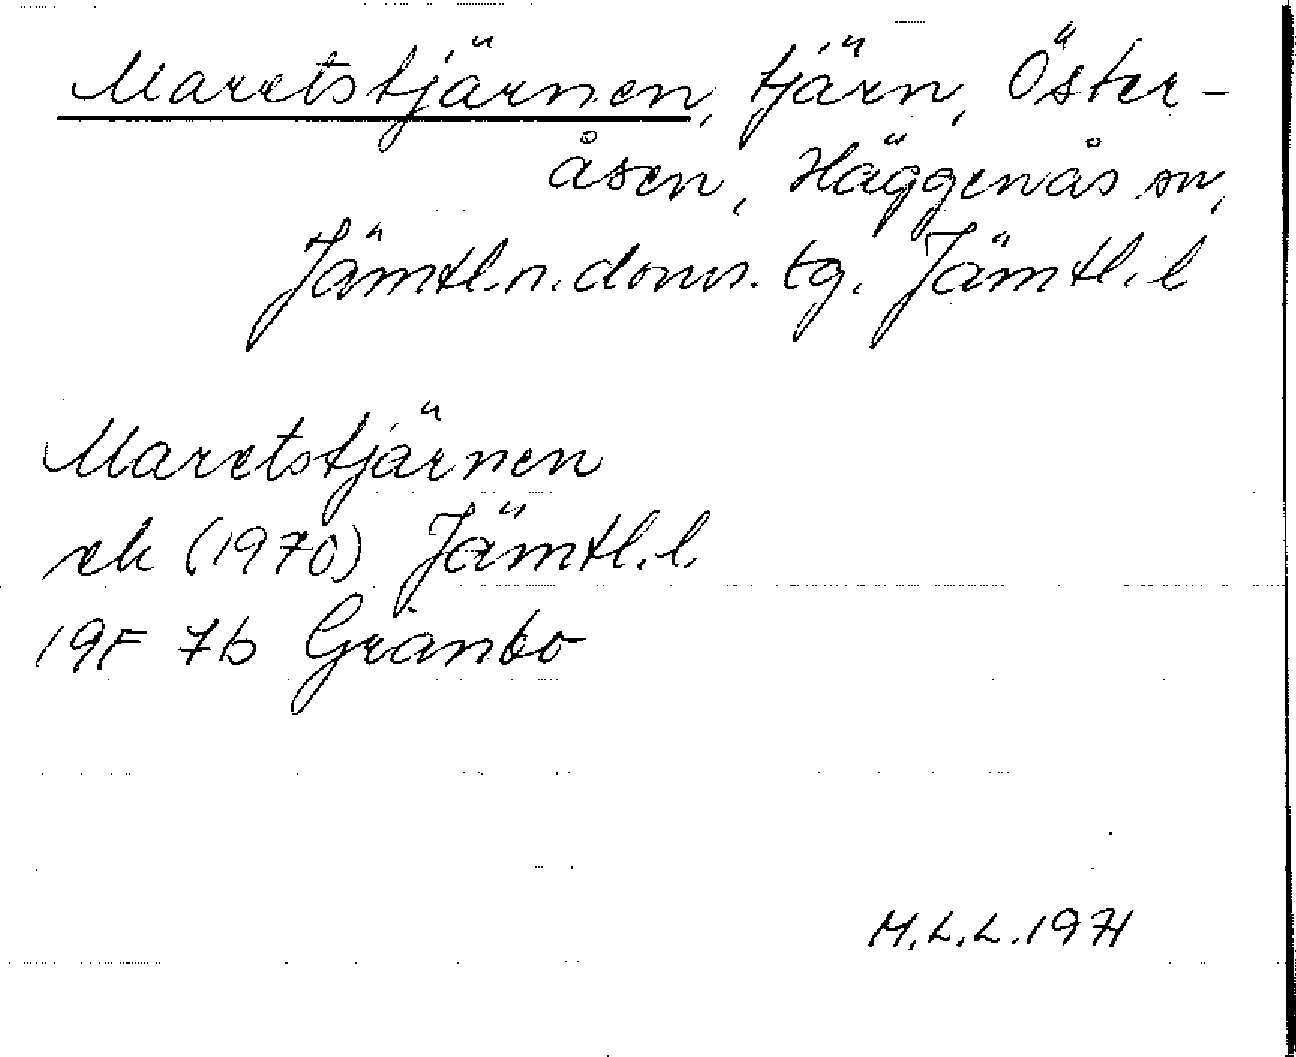 Maretstjärnen, tjärn, Öster-
åsen, Häggenås sn,
Jämtl.n.doms.tg. Jämtl.l
Maretstjärnen
ek (1970) Jämtl.l.
19F 7b Gränbo
M.L.L.1971